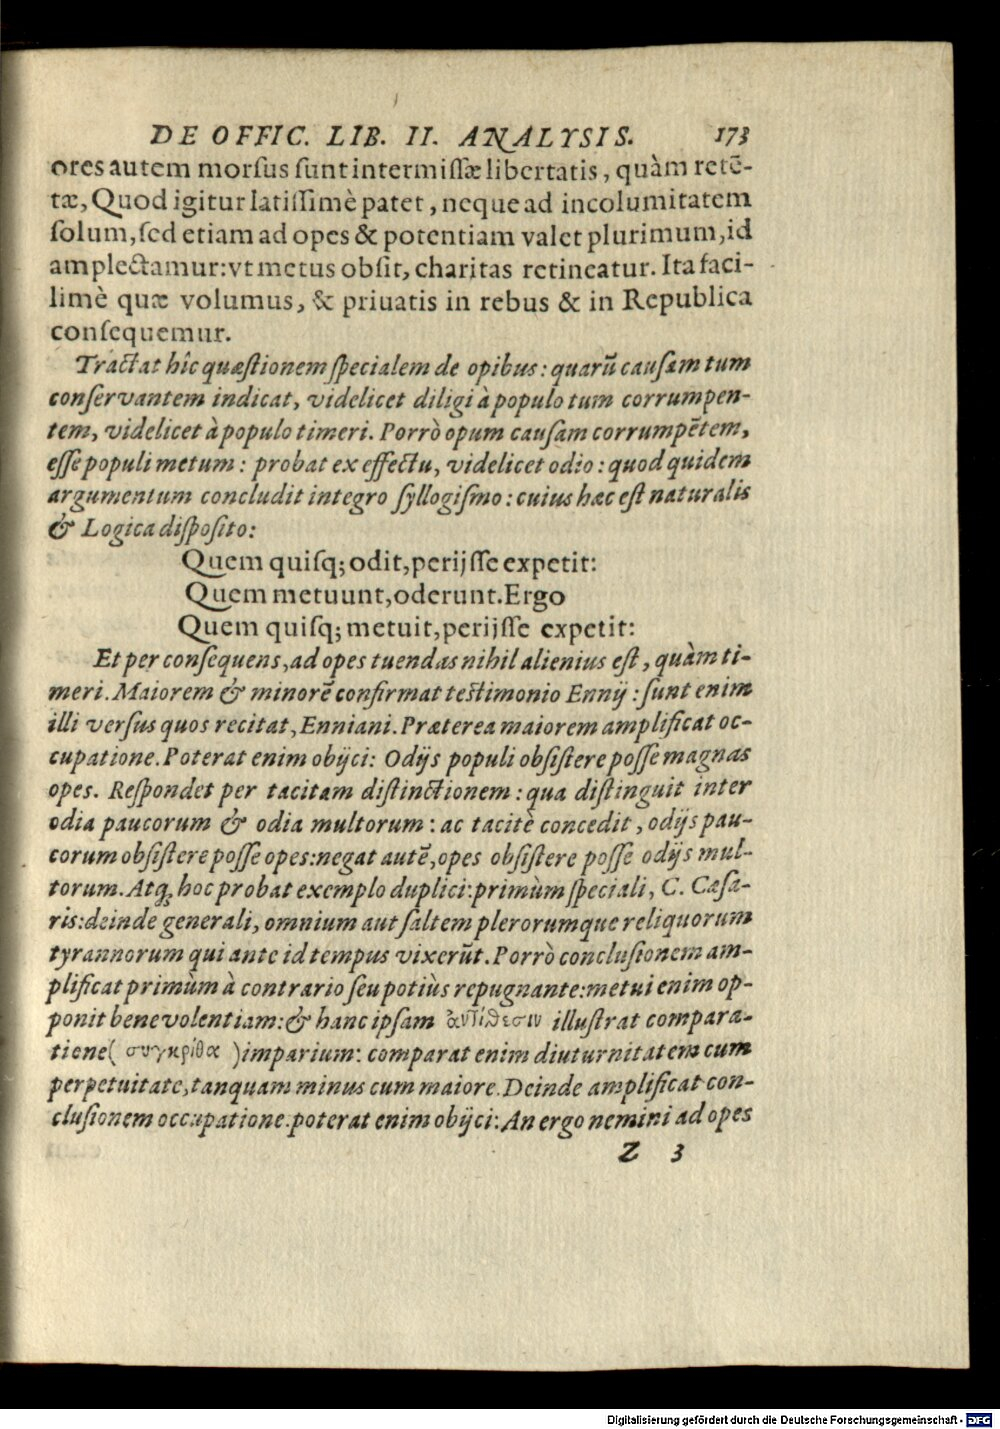 DE OFFIC. LIB. II. ANALYSIS. 173
ores autem morsus sunt intermissæ libertatis, quàm retē-
tæ, Quod igitur latissimè patet, neque ad incolumitatem
solum, sed etiam ad opes & potentiam valet plurimum, id
amplectamur: vt metus obsit, charitas retineatur. Ita faci-
limè quæ volumus, & priuatis in rebus & in Republica
consequemur.
Tractat hîc quæstionem specialem de opibus: quarū causam tum
conservantem indicat, videlicet diligi à populo tum corrumpen-
tem, videlicet à populo timeri. Porrò opum causam corrumpētem,
esse populi metum: probat ex effectu, videlicet odio: quod quidem
argumentum concludit integro syllogismo: cuius hæc est naturalis
& Logica disposito:
Quem quisq; odit, perijsse expetit:
Quem metuunt, oderunt. Ergo
Quem quisq; metuit, perijsse expetit:
Et per consequens, ad opes tuendas nihil alienius est, quàm ti-
meri. Maiorem & minorē confirmat testimonio Ennij: sunt enim
illi versus quos recitat, Enniani. Præterea maiorem amplificat oc-
cupatione. Poterat enim obijci: Odijs populi obsistere posse magnas
opes. Respondet per tacitam distinctionem: qua distinguit inter
odia paucorum & odia multorum: ac tacitè concedit, odijs pau-
corum obsistere posse opes: negat autē, opes obsistere posse odijs mul-
torum. Atq; hoc probat exemplo duplici: primùm speciali, C. Cæsa-
ris: deinde generali, omnium aut saltem plerorumque reliquorum
tyrannorum qui ante id tempus vixerūt. Porrò conclusionem am-
plificat primùm à contrario seu potiùs repugnante: metui enim op-
ponit benevolentiam: & hanc ipsam ἀντίθεσιν illustrat compara-
tiene ( συγκρίθα ) imparium: comparat enim diuturnitatem cum
perpetuitate, tanquam minus cum maiore. Deinde amplificat con-
clusionem occupatione. poterat enim obijci: An ergo nemini ad opes
Z 3
Digitalisierung gefördert durch die Deutsche Forschungsgemeinschaft - DFG